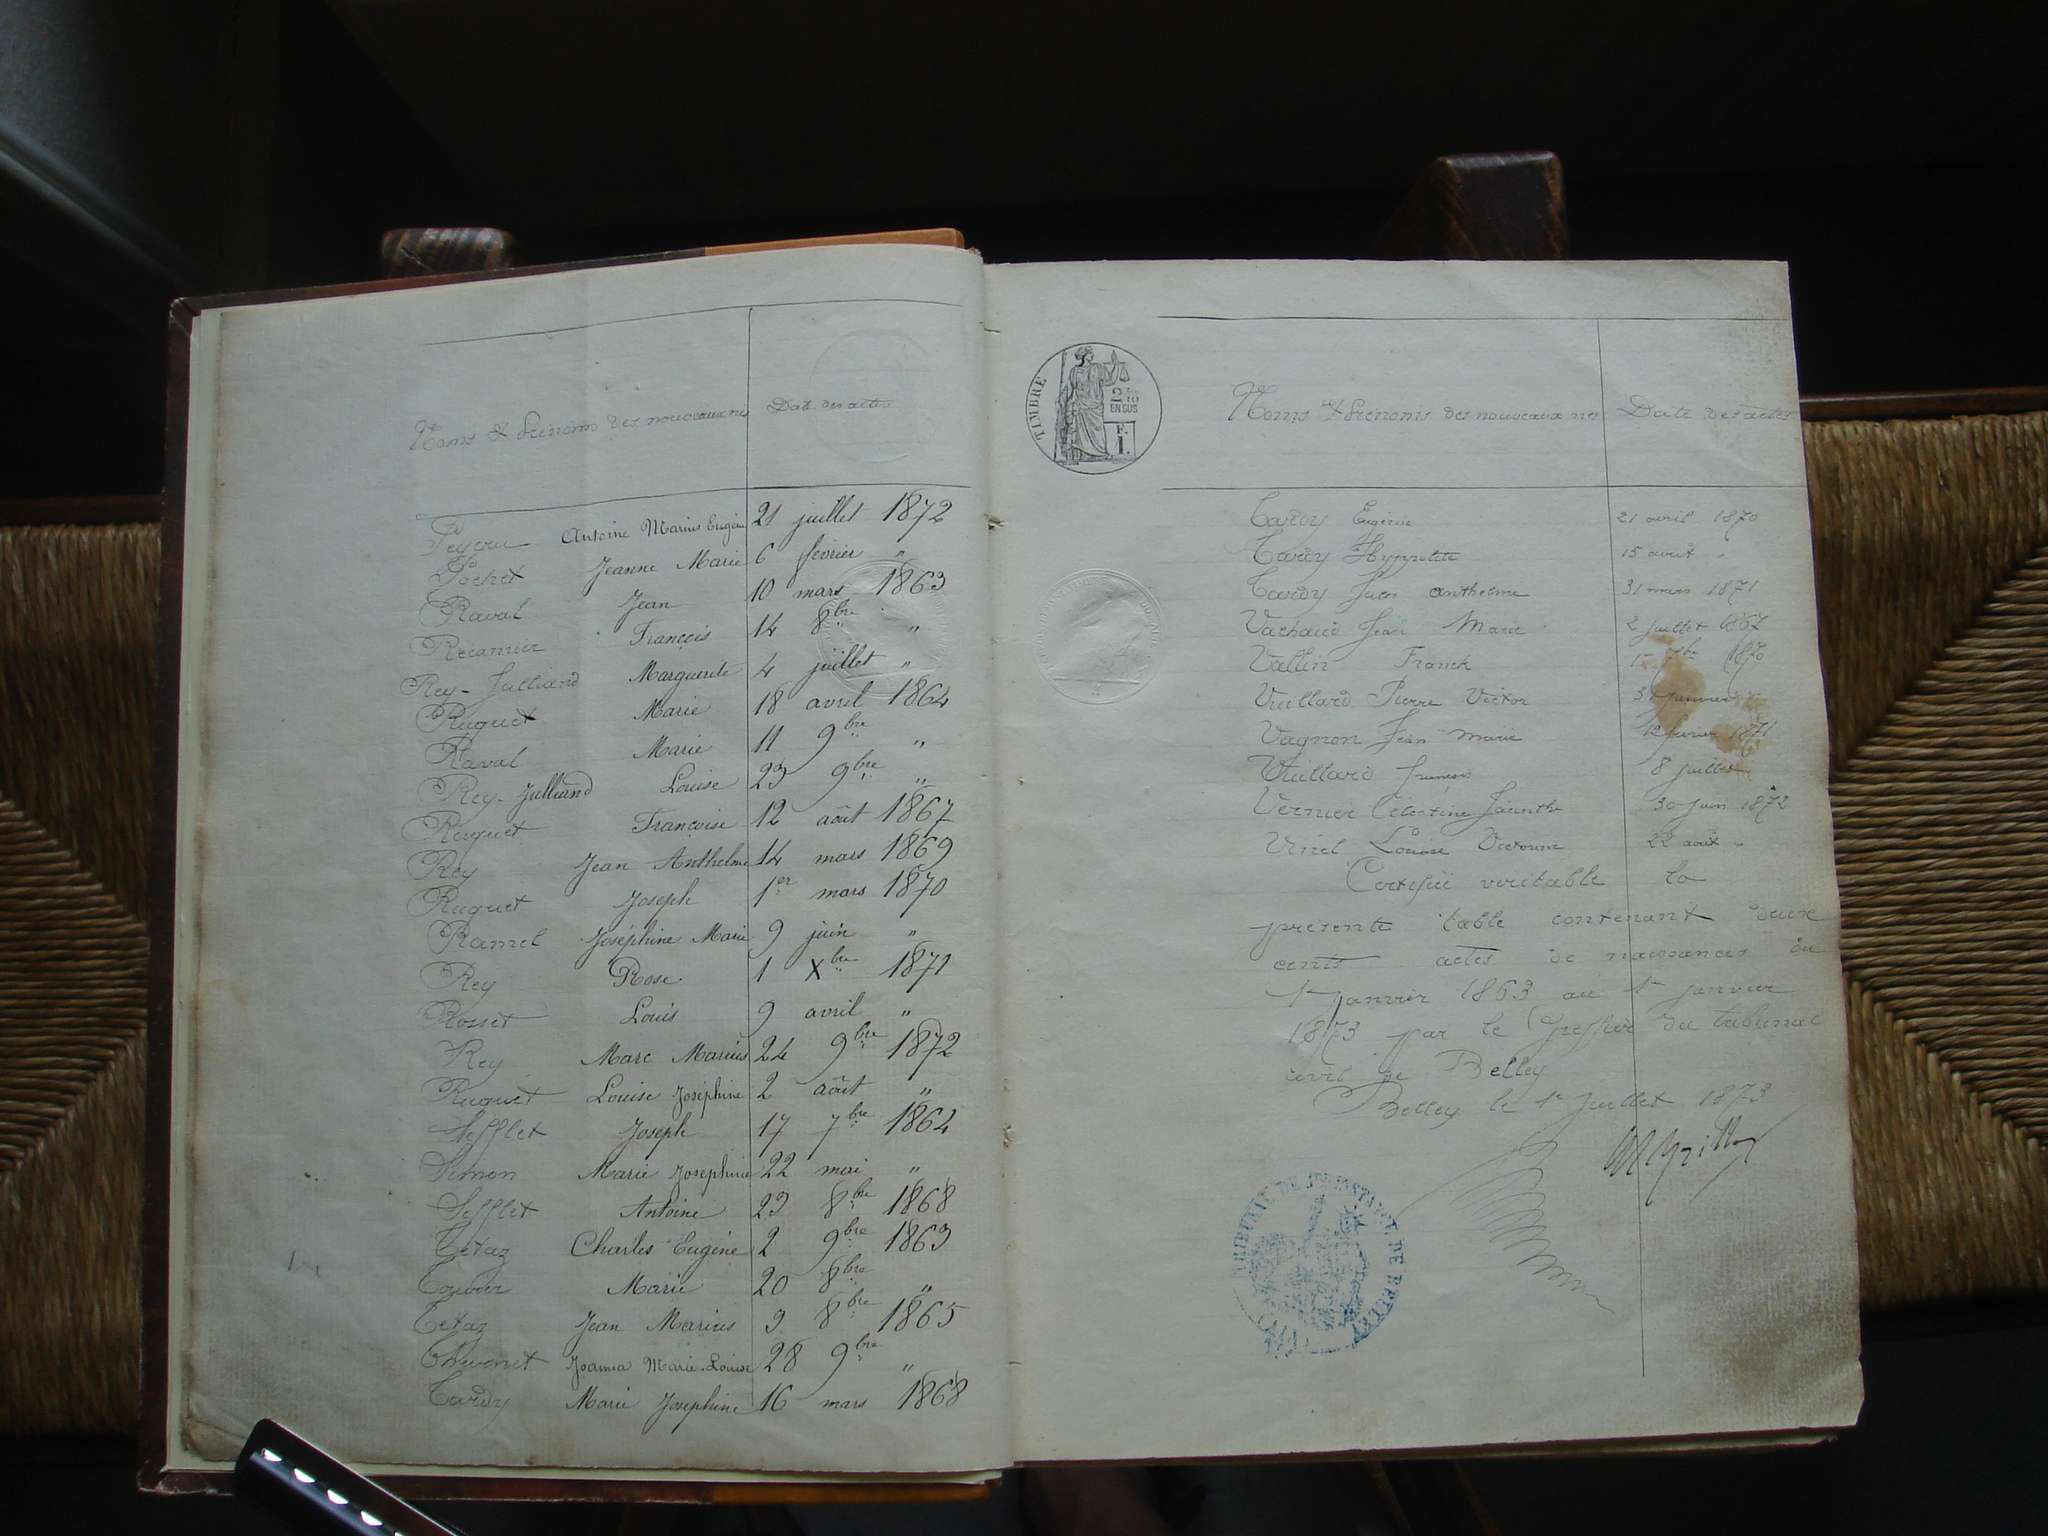 Noms & Prénoms des nouveaux nés Date des actes
Peyeru Antoine Marius Eugène 21 juillet 1872
Pochet Jeanne Marie 6 février "
Raval Jean 10 mars 1863
Récamier François 14 8bre "
Rey-Julliand Marguerite 4 juillet "
Ruguet Marie 18 avril 1864
Raval Marie 11 9bre "
Rey-Julliand Louise 23 9bre "
Ruguet Françoise 12 août 1867
Rey Jean Anthelme 14 mars 1869
Ruguet Joseph 1er mars 1870
Ramel Joséphine Marie 9 juin "
Rey Rose 1 Xbre 1871
Rosset Louis 9 avril "
Rey Marc Marius 24 9bre 1872
Ruguet Louise Joséphine 2 août "
Sefflet Joseph 17 7bre 1864
Simon Marie Joséphine 22 mai "
Sefflet Antoine 23 8bre 1868
Tétaz Charles Eugène 2 9bre 1863
Marie 20 8bre "
Tétaz Jean Marius 9 8bre 1865
Thévenet Joanna Marie-Louise 28 9bre "
Tardy Marie Joséphine 16 mars 1868
TIMBRE
2/10
EN SUS
F.
1.
Noms & Prénoms des nouveaux nés Date des actes
Tardy Eugénie 21 avril 1870
Tardy Hyppolite 15 août "
Tardy Jules Anthelme 31 mars 1871
Vachaud Jean Marie 2 juillet 1867
Vallin Franck 7bre 1870
Vuillard Pierre Victor janvier
Vagnon Jean Marie 12 février 1871
Vuillard François 8 juillet
Vernier Célestine Jacinthe 30 juin 1872
Vinel Louise Victorine 22 août "
Certifiée véritable la
présente table contenant deux
cents actes de naissances du
1er janvier 1863 au 1er janvier
1873 par le Greffier du tribunal
civil de Belley
Belley le 1er Juillet 1873
TRIBUNAL DE 1ERE INSTANCE DE BELLEY